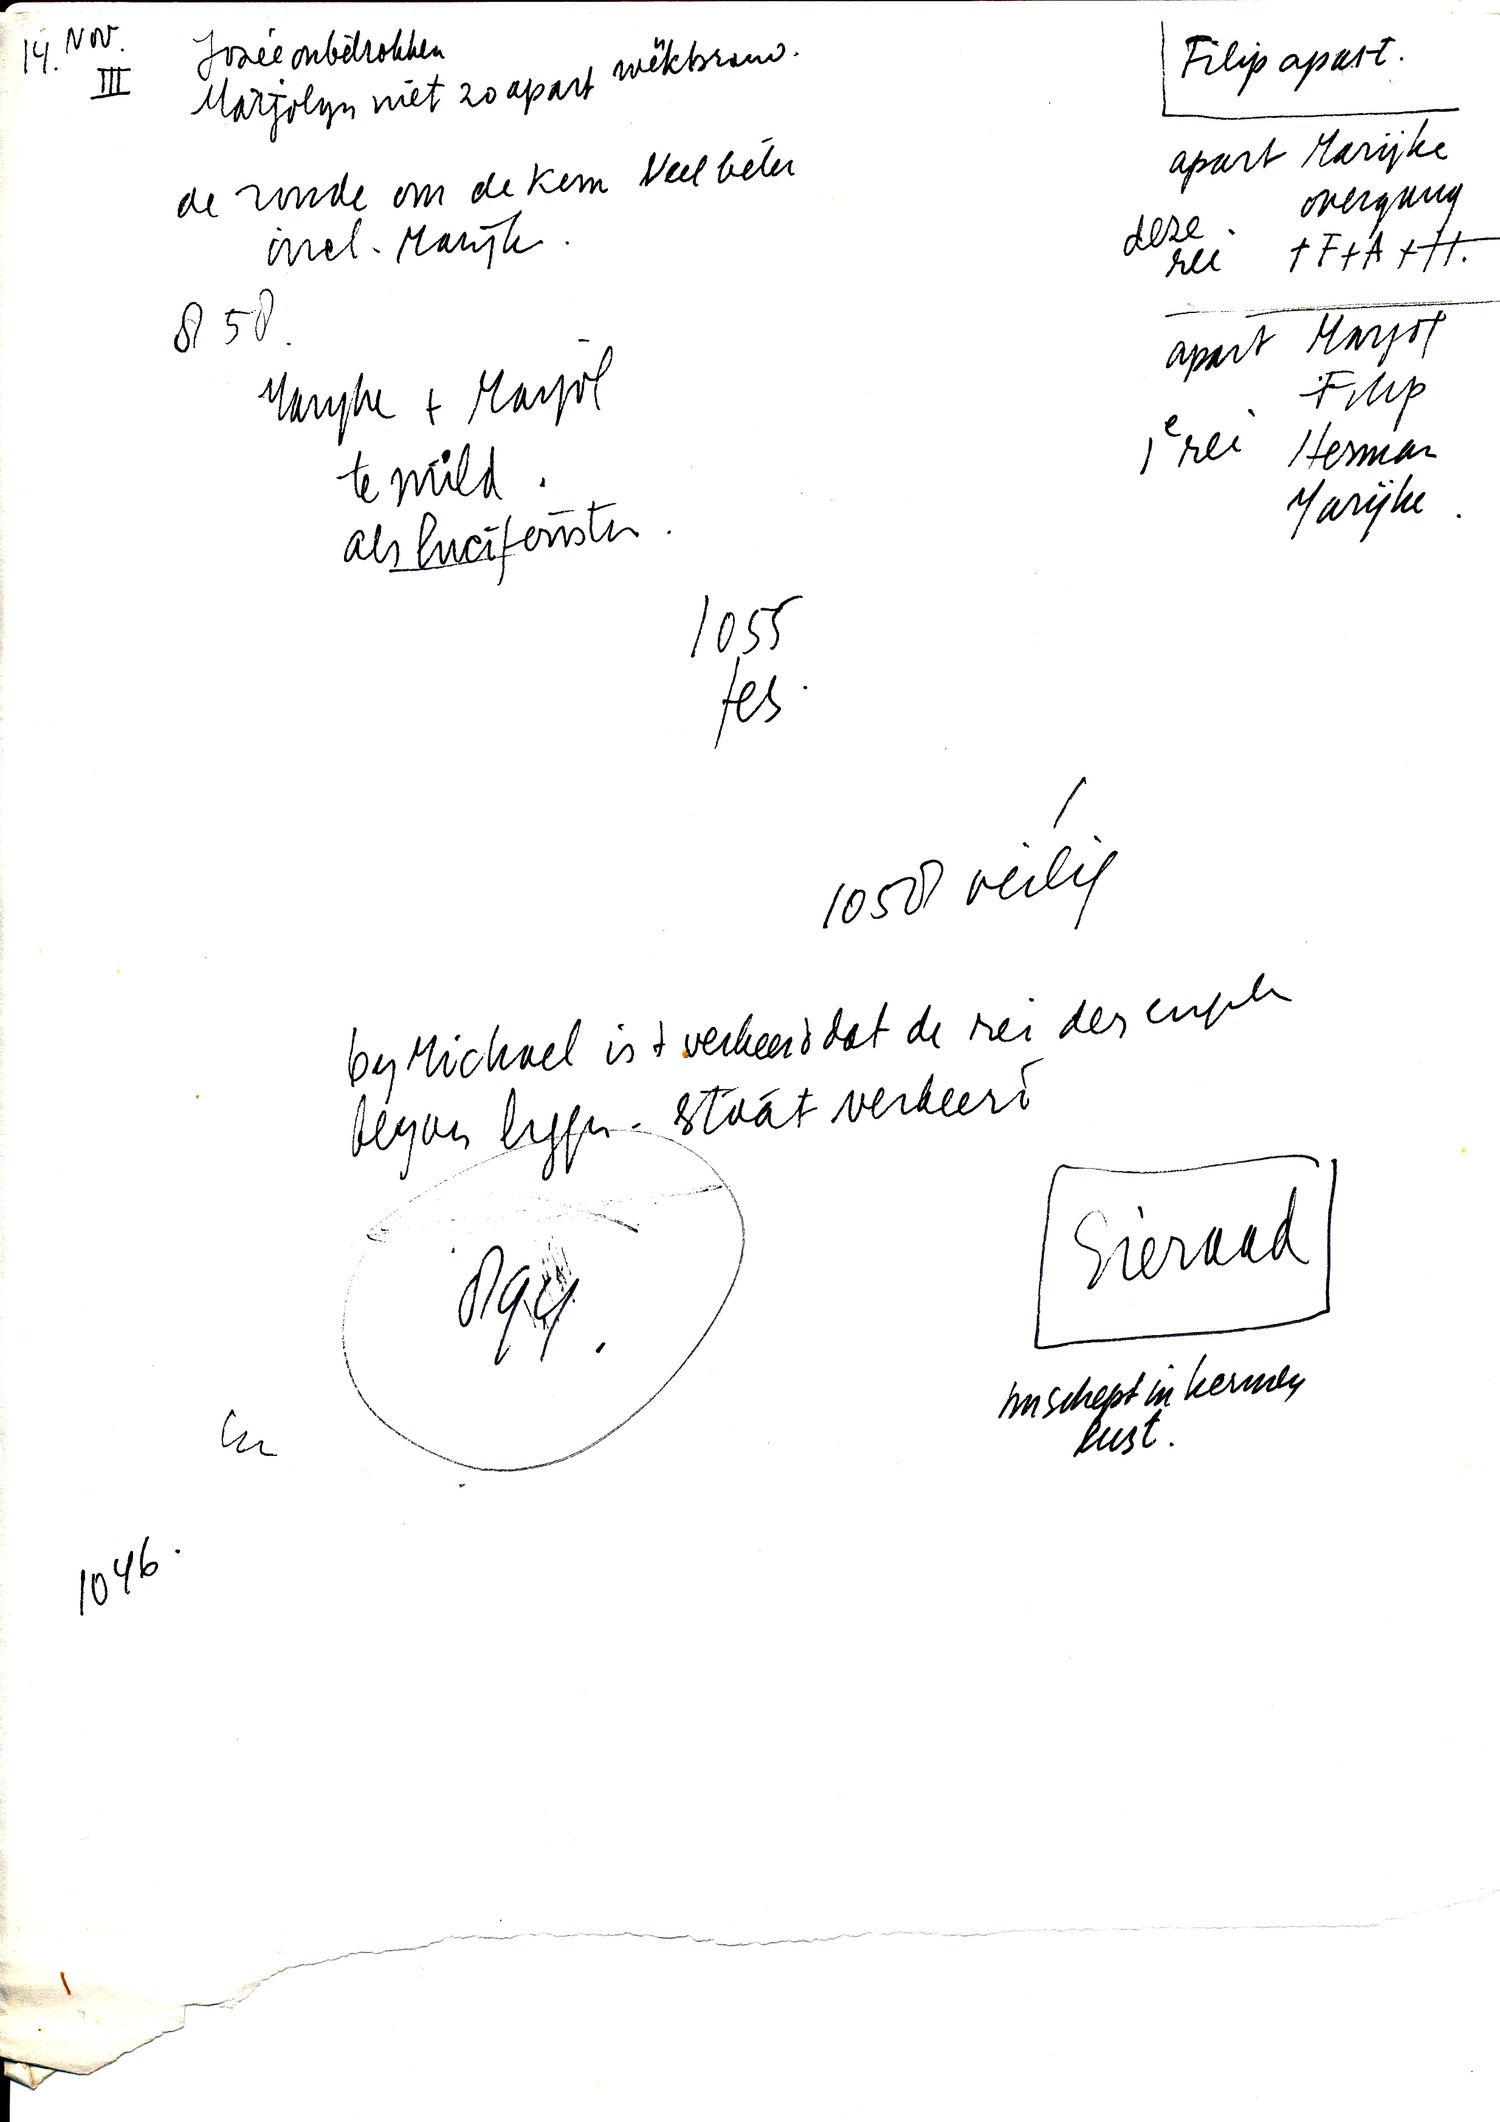 14. Nov.
III
Josée onbetrokken
Marjolyn niet zo apart
de ronde om de kern Veel beter
incl. Marijke.
858.
Maryke + Marjol
te mild.
als luciferisten.
1055
fes.
1058 veilig
by Michael is 't verkeerd dat de rei der engelen
began liggen. staat verkeerd
894.
En
1046.
Filip apart.
apart Marijke
overgang
deze rei + F + A + H.
apart Marjol
Filip
1e rei Herman
Marijke.
Sieraad
omschept in kermen
lust.